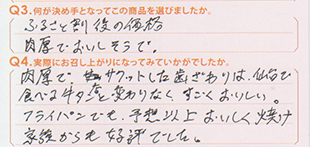 Q3.何が決め手となってこの商品を選びましたか。
ふるさと割後の価格
肉厚でおいしそうで。
Q4.実際にお召し上がりになってみていかがでしたか。
肉厚で、サクットした歯ざわりは、仙台で
食べる牛タンと変わりなく、すごくおいしい。
フライパンでも、予想以上おいしく焼け
家族からも好評でした。